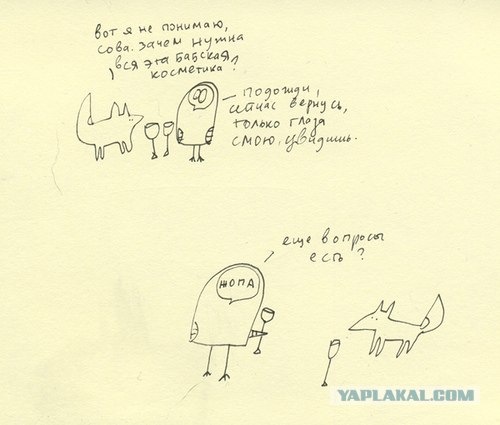 вот я не понимаю,
сова. зачем нужна
вся эта бабская
косметика?
подожди,
сейчас вернусь,
только глаза
смою. увидишь.
еще вопросы
есть?
ЖОПА
YAPLAKAL.COM